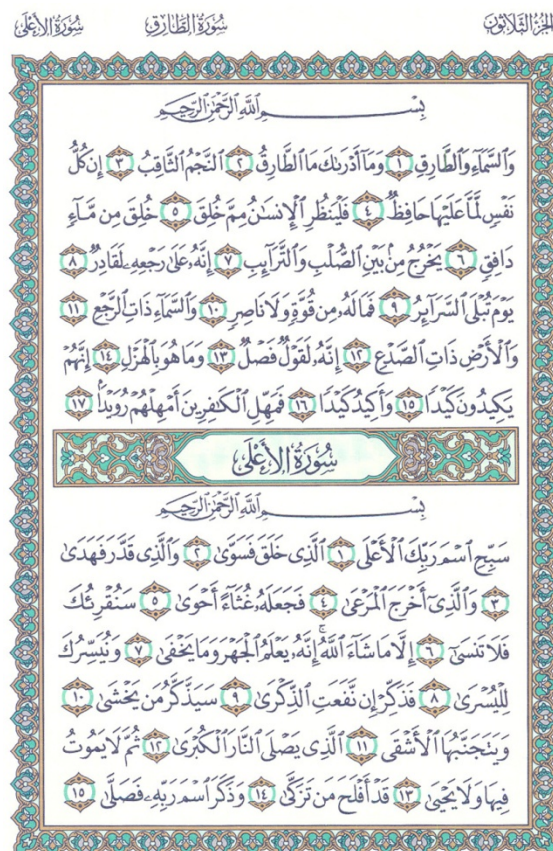 الجزء الثلاثون سورة الطارق سورة الأعلى
بِسْمِ ٱللَّهِ ٱلرَّحْمَٰنِ ٱلرَّحِيمِ
وَٱلسَّمَآءِ وَٱلطَّارِقِ ١ وَمَآ أَدْرَىٰكَ مَا ٱلطَّارِقُ ٢ ٱلنَّجْمُ ٱلثَّاقِبُ ٣ إِن كُلُّ
نَفْسٍ لَّمَّا عَلَيْهَا حَافِظٌ ٤ فَلْيَنظُرِ ٱلْإِنسَٰنُ مِمَّ خُلِقَ ٥ خُلِقَ مِن مَّآءٍ
دَافِقٍ ٦ يَخْرُجُ مِنۢ بَيْنِ ٱلصُّلْبِ وَٱلتَّرَآئِبِ ٧ إِنَّهُۥ عَلَىٰ رَجْعِهِۦ لَقَادِرٌ ٨
يَوْمَ تُبْلَى ٱلسَّرَآئِرُ ٩ فَمَا لَهُۥ مِن قُوَّةٍ وَلَا نَاصِرٍ ١٠ وَٱلسَّمَآءِ ذَاتِ ٱلرَّجْعِ ١١
وَٱلْأَرْضِ ذَاتِ ٱلصَّدْعِ ١٢ إِنَّهُۥ لَقَوْلٌ فَصْلٌ ١٣ وَمَا هُوَ بِٱلْهَزْلِ ١٤ إِنَّهُمْ
يَكِيدُونَ كَيْدًا ١٥ وَأَكِيدُ كَيْدًا ١٦ فَمَهِّلِ ٱلْكَٰفِرِينَ أَمْهِلْهُمْ رُوَيْدًۢا ١٧
سُورَةُ الأَعْلَى
بِسْمِ ٱللَّهِ ٱلرَّحْمَٰنِ ٱلرَّحِيمِ
سَبِّحِ ٱسْمَ رَبِّكَ ٱلْأَعْلَى ١ ٱلَّذِى خَلَقَ فَسَوَّىٰ ٢ وَٱلَّذِى قَدَّرَ فَهَدَىٰ
٣ وَٱلَّذِىٓ أَخْرَجَ ٱلْمَرْعَىٰ ٤ فَجَعَلَهُۥ غُثَآءً أَحْوَىٰ ٥ سَنُقْرِئُكَ
فَلَا تَنسَىٰٓ ٦ إِلَّا مَا شَآءَ ٱللَّهُ ۚ إِنَّهُۥ يَعْلَمُ ٱلْجَهْرَ وَمَا يَخْفَىٰ ٧ وَنُيَسِّرُكَ
لِلْيُسْرَىٰ ٨ فَذَكِّرْ إِن نَّفَعَتِ ٱلذِّكْرَىٰ ٩ سَيَذَّكَّرُ مَن يَخْشَىٰ ١٠
وَيَتَجَنَّبُهَا ٱلْأَشْقَى ١١ ٱلَّذِى يَصْلَى ٱلنَّارَ ٱلْكُبْرَىٰ ١٢ ثُمَّ لَا يَمُوتُ
فِيهَا وَلَا يَحْيَىٰ ١٣ قَدْ أَفْلَحَ مَن تَزَكَّىٰ ١٤ وَذَكَرَ ٱسْمَ رَبِّهِۦ فَصَلَّىٰ ١٥